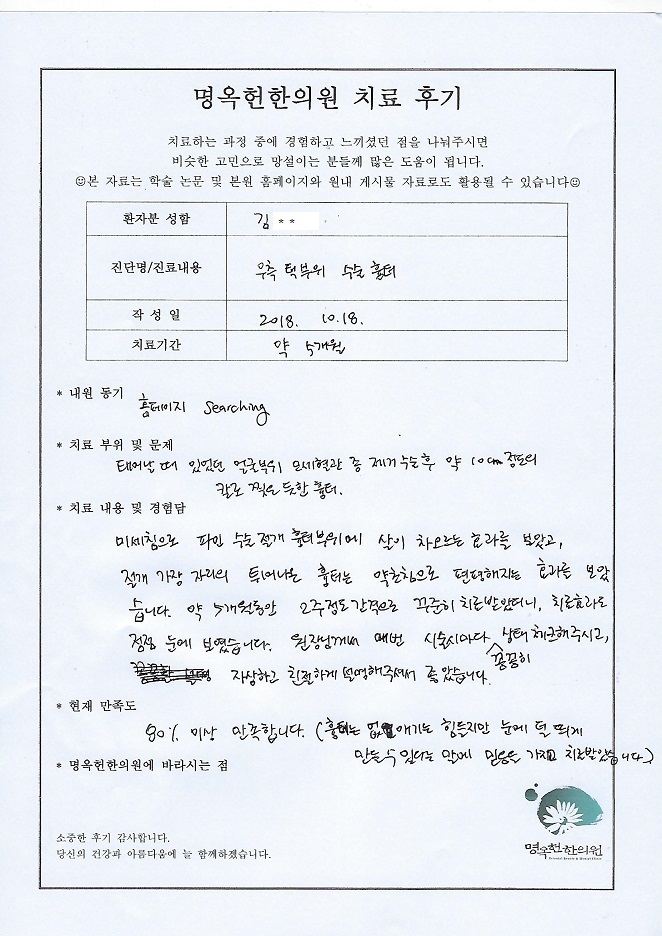 명옥헌한의원 치료 후기
치료하는 과정 중에 경험하고 느끼셨던 점을 나눠주시면
비슷한 고민으로 망설이는 분들께 많은 도움이 됩니다.
☺본 자료는 학술 논문 및 본원 홈페이지와 원내 게시물 자료로도 활용될 수 있습니다☺
환자분 성함 김 **
진단명/진료내용 우측 턱부위 수술 흉터
작 성 일 2018. 10.18.
치료기간 약 5개월
* 내원 동기
홈페이지 Searching
* 치료 부위 및 문제
태어날 때 있었던 얼굴부위 모세혈관 종 제거 수술 후 약 10cm 정도의
칼로 찢은 듯한 흉터.
* 치료 내용 및 경험담
미세침으로 파인 수술 절개 흉터부위에 살이 차오르는 효과를 보았고,
절개 가장 자리의 튀어나온 흉터는 약초침으로 편평해지는 효과를 보았
습니다. 약 5개월동안 2주정도 간격으로 꾸준히 치료받았더니, 치료효과도
점점 눈에 보였습니다. 원장님께서 매번 시술시마다 상태 체크해주시고,
꼼꼼히
자상하고 친절하게 설명해주셔서 좋았습니다.
* 현재 만족도
80% 이상 만족합니다. (흉터는 없애기는 힘들지만 눈에 덜 띄게
만들 수 있다는 말에 믿음을 가지고 치료받았습니다.)
* 명옥헌한의원에 바라시는 점
소중한 후기 감사합니다.
당신의 건강과 아름다움에 늘 함께하겠습니다.
명옥헌한의원